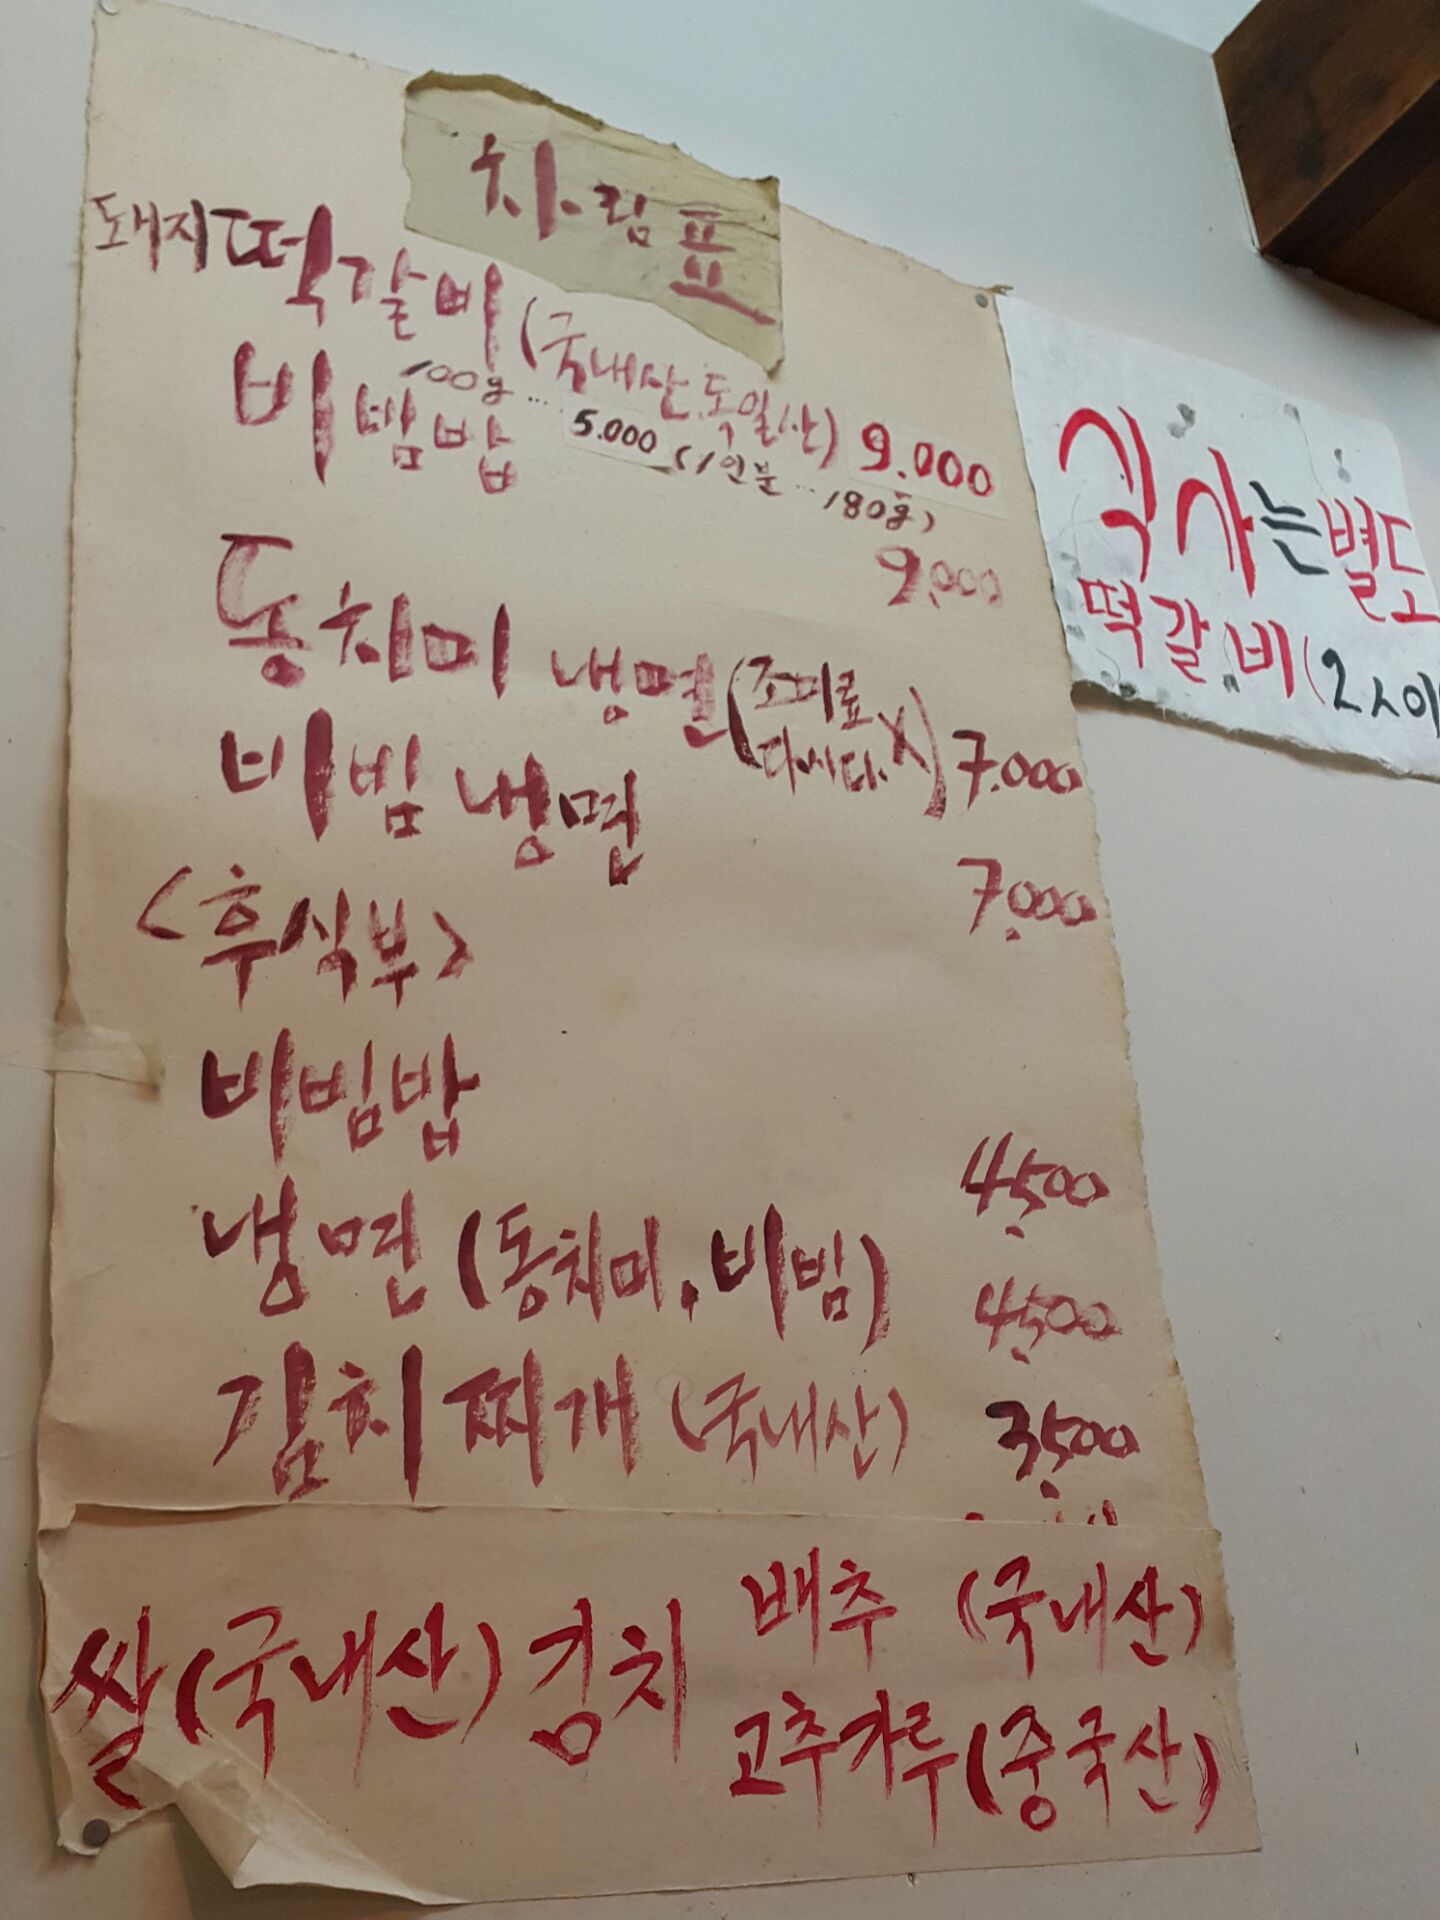 차림표
돼지떡갈비(국내산.독일산) 9.000
100g... 5.000 (1인분...180g)
비빔밥 9.000
동치미 냉면(조미료 다시다. X) 7.000
비빔냉면 7.000
<후식부>
비빔밥 4.500
냉면(동치미, 비빔) 4.500
김치찌개(국내산) 3.500
쌀(국내산) 김치 배추 (국내산)
고추가루(중국산)
식사는 별도
떡갈비(2人이